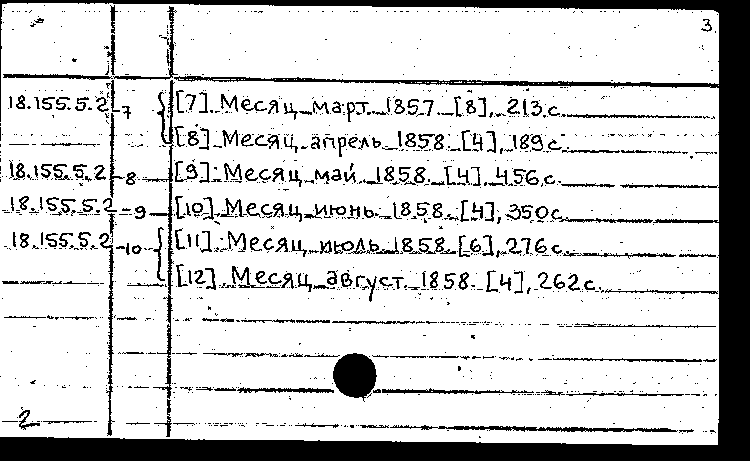 3.
18.155.5.2 -7 [7]. Месяц март 1857. [8], 213 с.
[8]. Месяц апрель 1858. [4], 189 с.
18.155.5.2 -8 [9]. Месяц май 1858. [4], 456 с.
18.155.5.2 -9 [10]. Месяц июнь 1858. [4], 350 с.
18.155.5.2 -10 [11]. Месяц июль 1858. [6], 276 с.
[12]. Месяц август 1858. [4], 262 с.
2